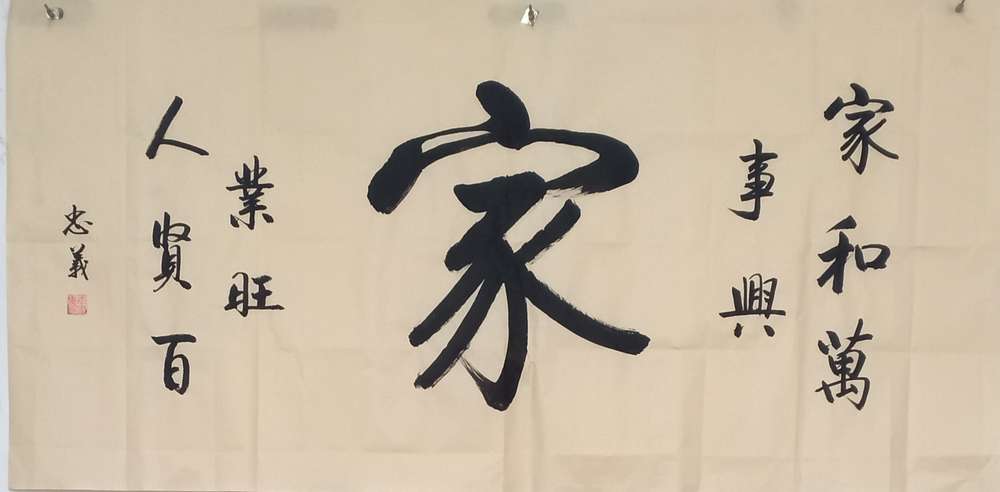 家和萬
事興
家
人賢百
業旺
忠義